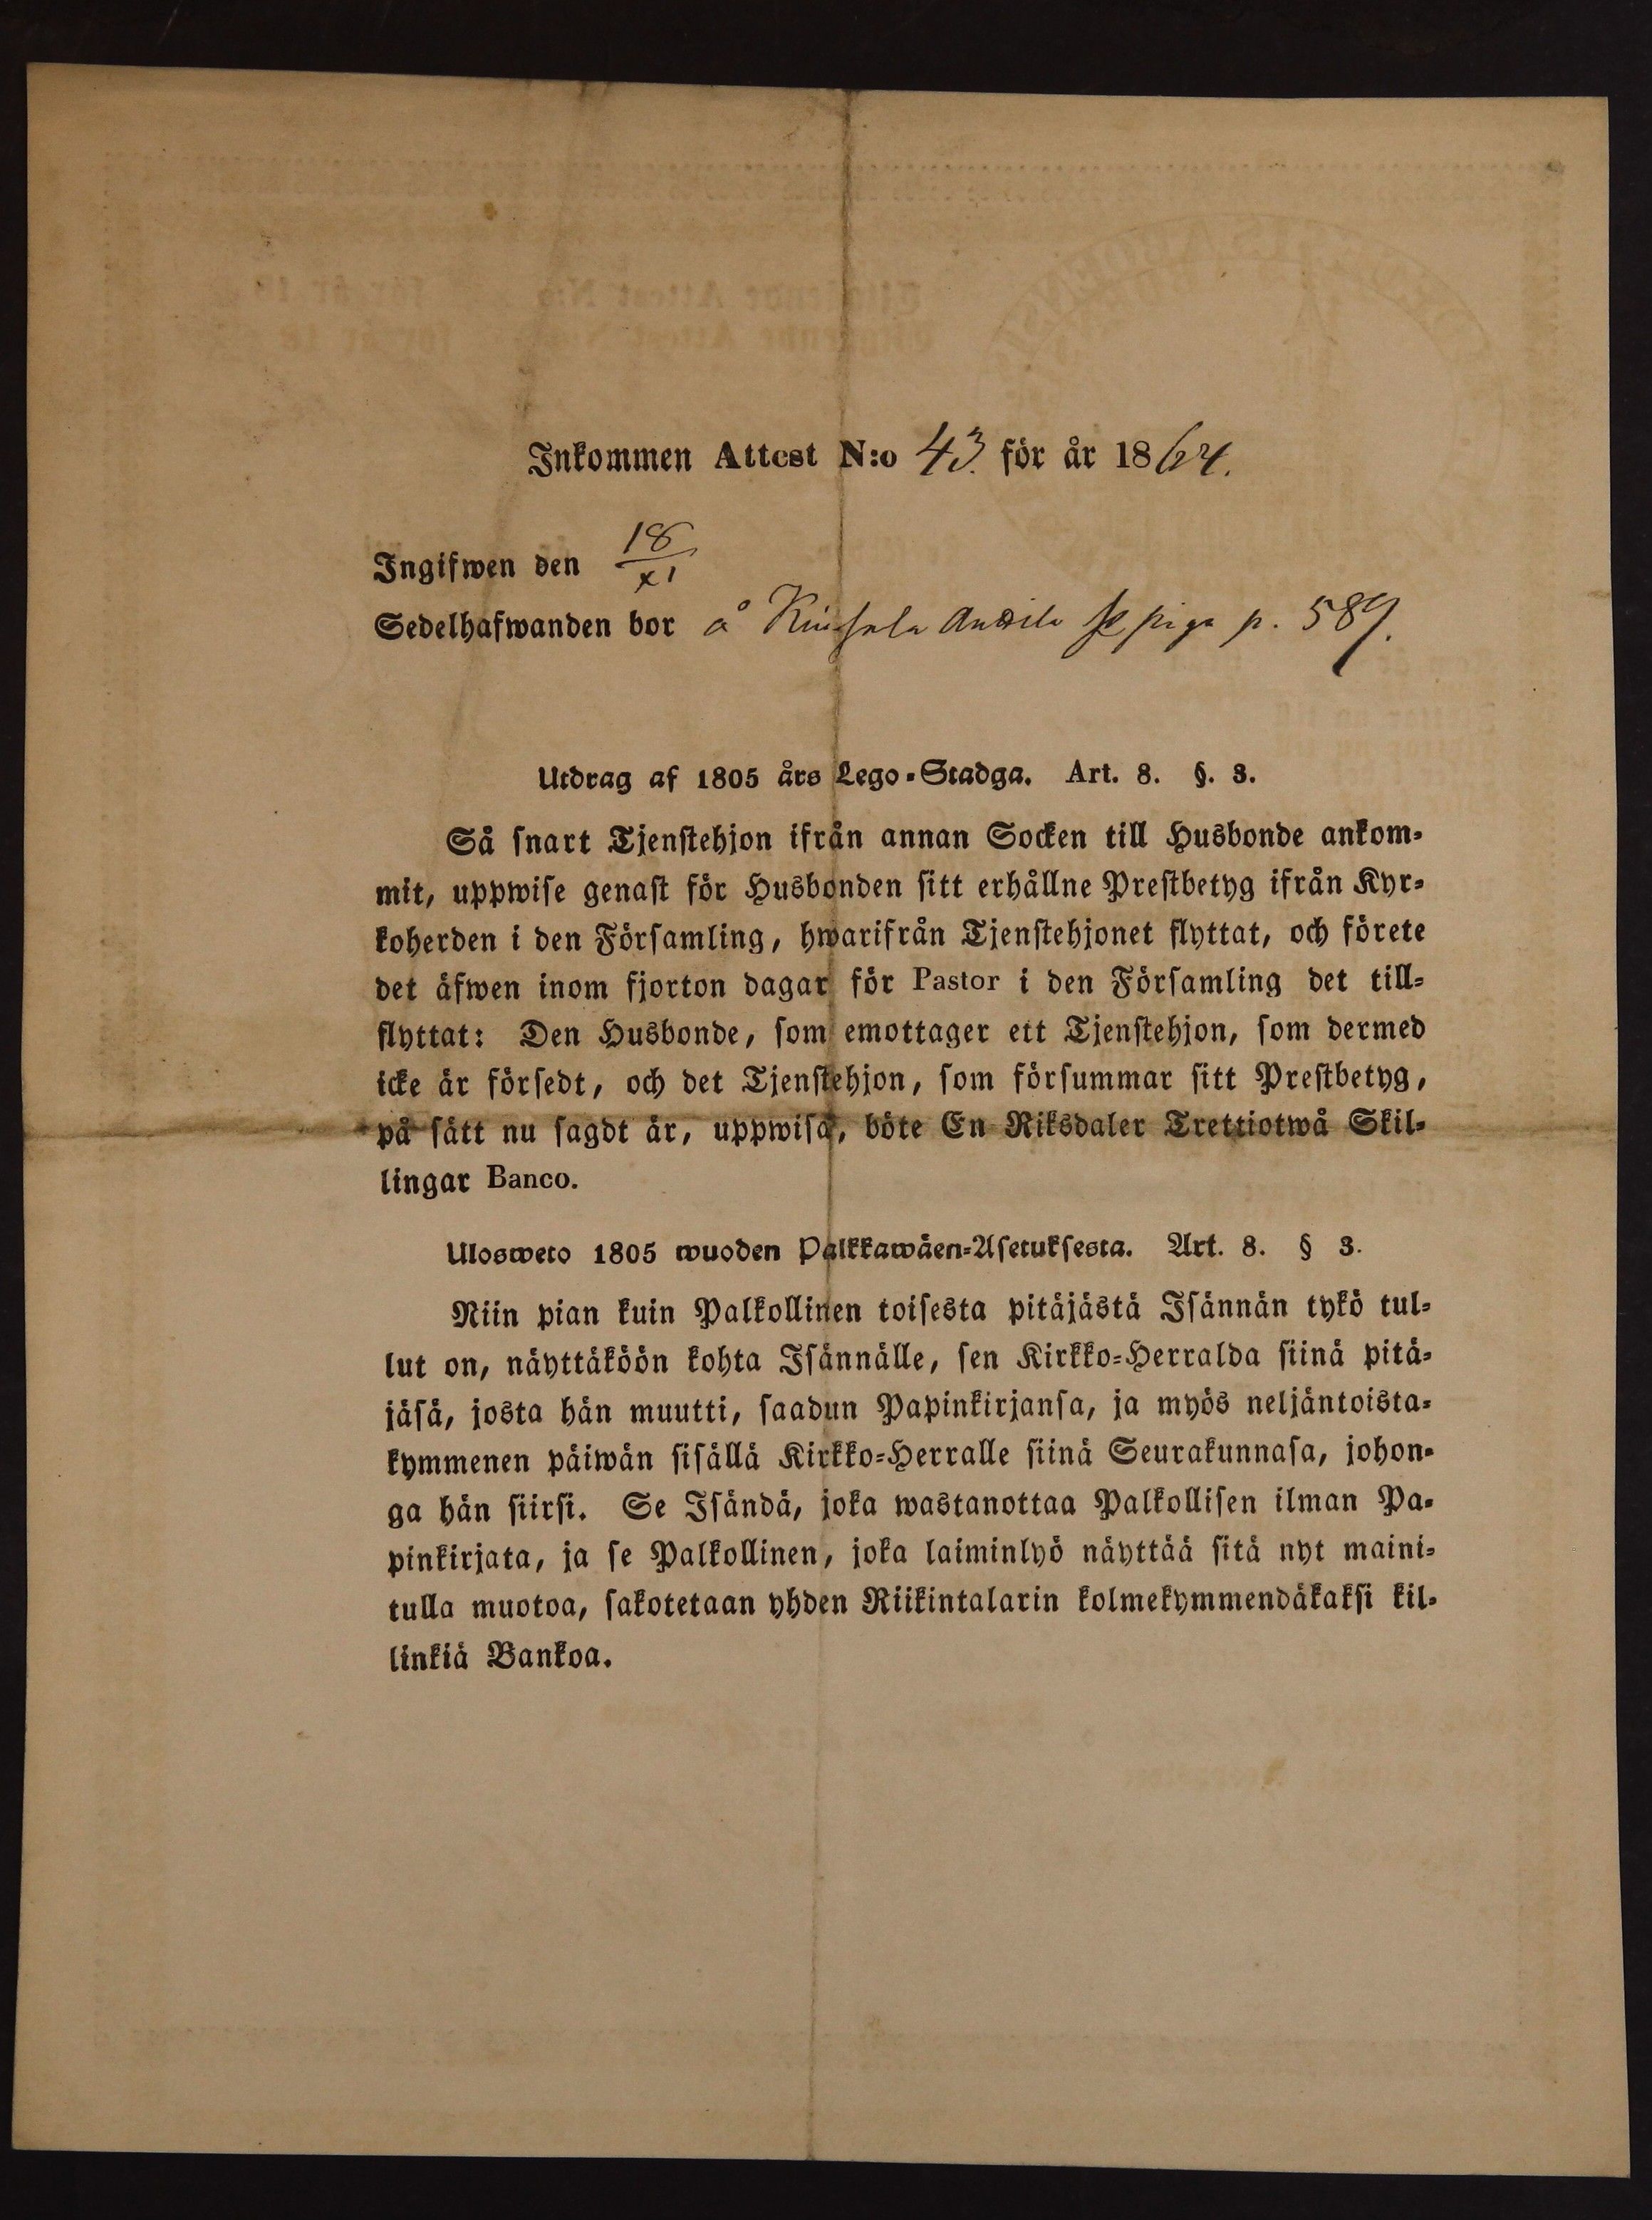 Inkommen Attest N:o 43. för år 1864.
Ingifwen den 18/XI
Sedelhafwanden bor å piga p. 589.
Utdrag af 1805 års Lego-Stadga. Art. 8. §. 3.
Så snart Tjenstehjon ifrån annan Socken till Husbonde ankom-
mit, uppwise genast för Husbonden sitt erhållne Prestbetyg ifrån Kyr-
koherden i den Församling, hwarifrån Tjenstehjonet flyttat, och förete
det äfwen inom fjorton dagar för Pastor i den Församling det till-
flyttat: Den Husbonde, som emottager ett Tjenstehjon, som dermed
icke är försedt, och det Tjenstehjon, som försummar sitt Prestbetyg,
på sätt nu sagdt är, uppwisa, böte En Riksdaler Trettiotwå Skil-
lingar Banco.
Ulosweto 1805 wuoden Palkkawäen-Asetuksesta. Art. 8. § 3.
Niin pian kuin Palkollinen toisesta pitäjästä Isännän tykö tul-
lut on, näyttäköön kohta Isännälle, sen Kirkko-Herralda siinä pitä-
jäsä, josta hän muutti, saadun Papinkirjansa, ja myös neljäntoista-
kymmenen päiwän sisällä Kirkko-Herralle siinä Seurakunnasa, johon-
ga hän siirsi. Se Isändä, joka wastanottaa Palkollisen ilman Pa-
pinkirjata, ja se Palkollinen, joka laiminlyö näyttää sitä nyt maini-
tulla muotoa, sakotetaan yhden Riikintalarin kolmekymmendäkaksi kil-
linkiä Bankoa.